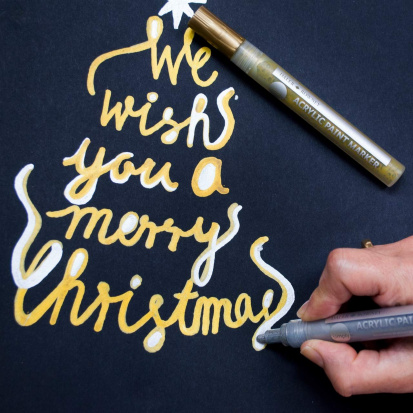 We
wish
you a
merry
Christmas
ACRYLIC PAINT MARKER
ACRYLIC PA